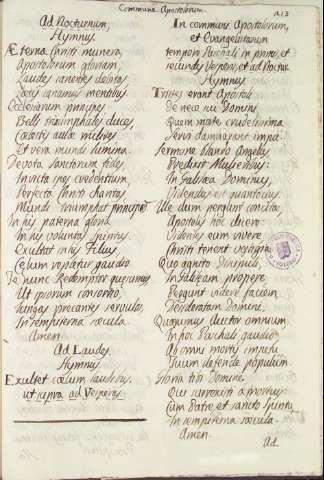 Commune Apostolorum.
Ad Nocturnum,
Hymnus.
Æterna Christi munera,
Apostolorum gloriam,
Laudes canentes debitas
Lætis canamus mentibus.
Ecclesiarum principes
Belli triumphales duces,
Cœlestis aulæ milites
Et vera mundi lumina.
Devota Sanctorum fides,
Invicta spes credentium,
Perfecta Christi charitas
Mundi triumphat principem.
In his paterna gloria
In his voluntas Spiritus,
Exultat in his Filius
Cœlum repletur gaudio.
Te nunc Redemptor quæsumus
Ut ipsorum consortio
Jungas precantes servulos
In sempiterna sæcula.
Amen.
Ad Laudes
Hymnus.
Exultet cœlum laudibus
ut supra ad Vesperas
In communi Apostolorum,
et Evangelistarum
tempore Paschali in primis, et
secundis Vesperis, et ad Noctur.
Hymnus
Tristes erant Apostoli
De nece sui Domini
Quem morte crudelissima
Servi damnarant impii.
Sermone blando Angelus
Prædixit Mulieribus:
In Galilæa Dominus
Videndus est quantocius
Illæ dum pergunt concitæ
Apostolis hoc dicere
Videntes eum vivere
Christi tenent vestigia
Quo agnito Discipuli
In Galilæam propere
Pergunt videre faciem
Desideratam Domini.
Quæsumus Auctor omnium
In hoc Paschali gaudio
Ab omni mortis impetu
Tuum defende populum.
Gloria tibi Domine
Qui surrexisti a mortuis
Cum Patre et sancto Spiritu
In sempiterna sæcula.
Amen.
Ad